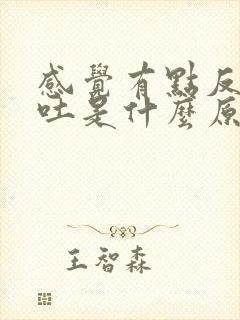 感覺有點反
吐是什麼原
王智森